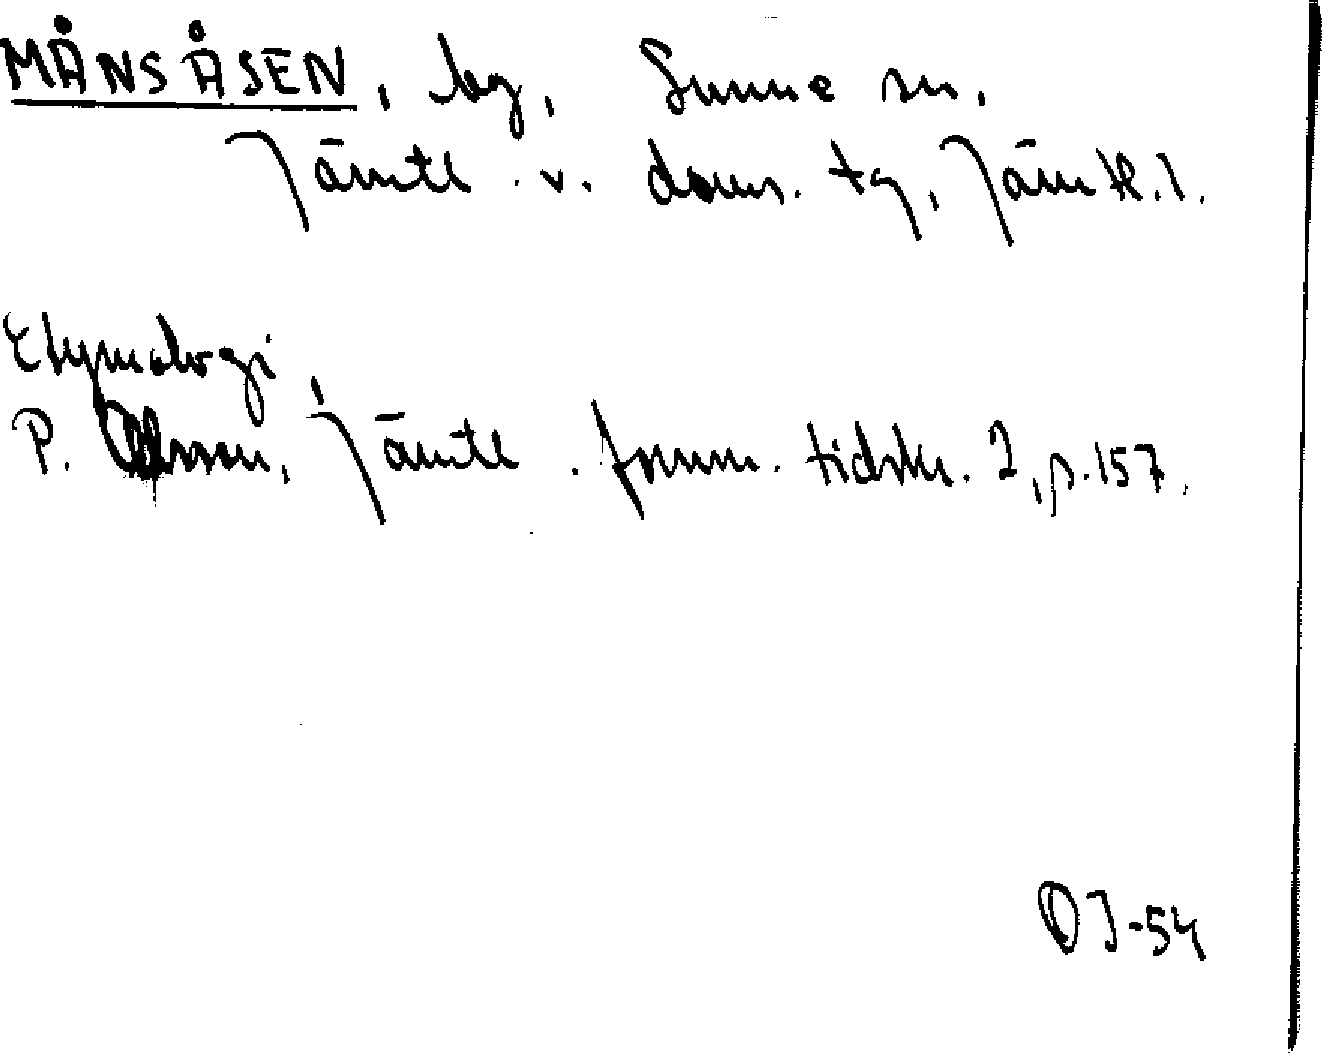 MÅNSÅSEN, by, Sunne sn,
Jämtl. v. doms. tg, Jämtl. l.
Etymologi
P. Olsson, Jämtl. fornm. tidskr. 2, p. 157.
OJ-54